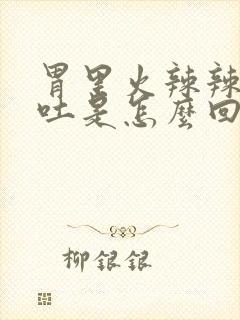 胃里火辣辣
吐是怎麼回
柳銀銀